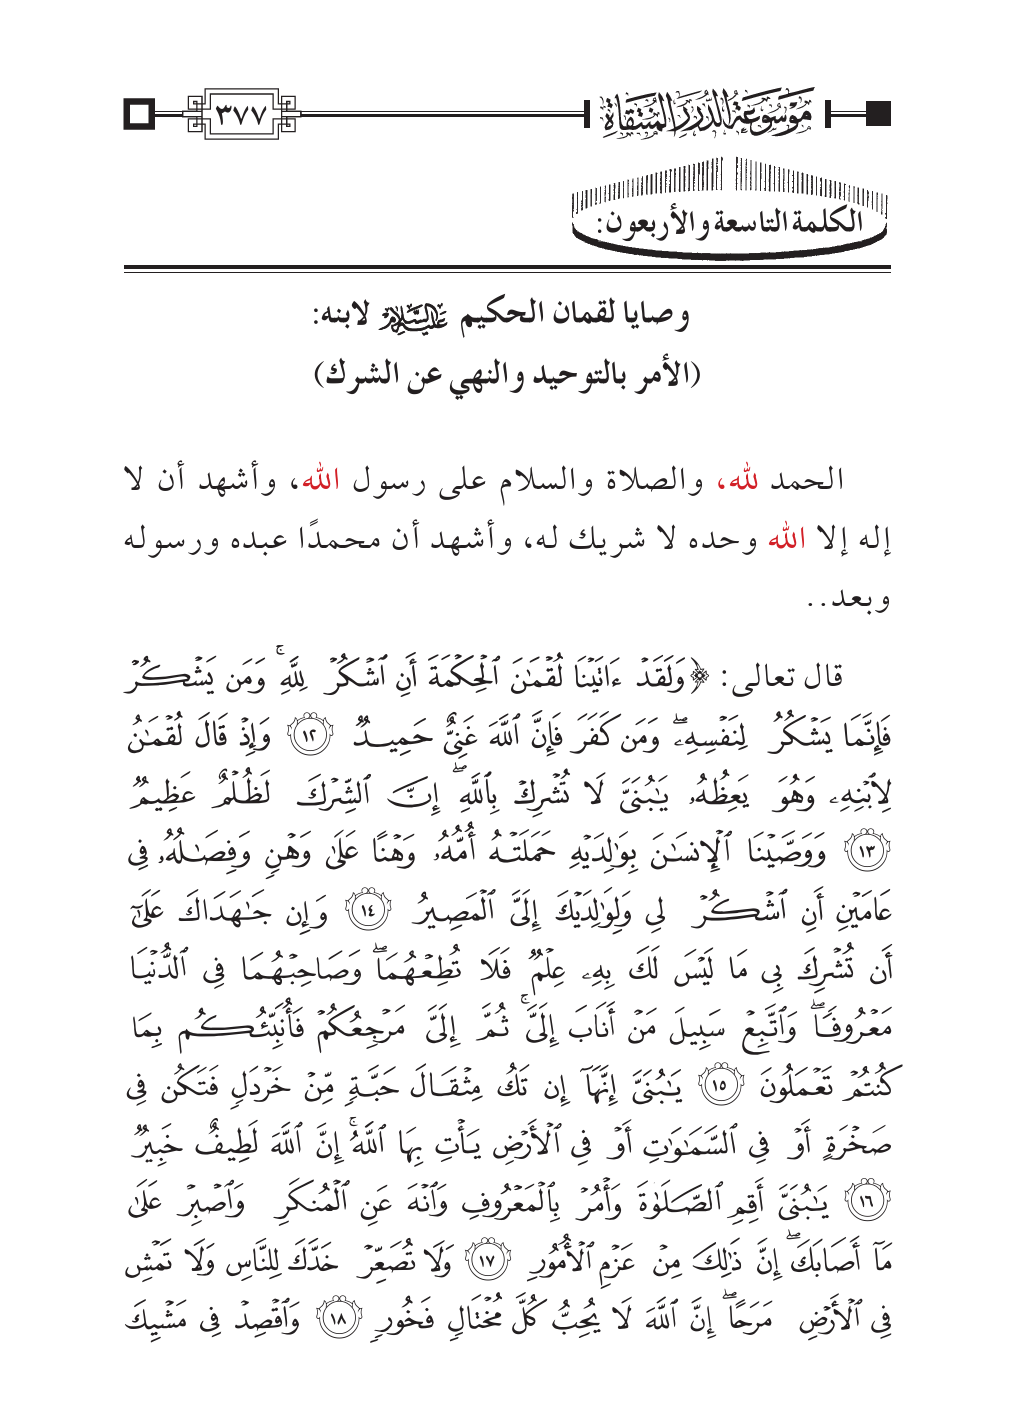 موسوعة الدرر المنتقاة
٣٧٧
الكلمة التاسعة والأربعون:
وصايا لقمان الحكيم عليه السلام لابنه:
(الأمر بالتوحيد والنهي عن الشرك)
الحمد لله، والصلاة والسلام على رسول الله، وأشهد أن لا
إله إلا الله وحده لا شريك له، وأشهد أن محمدًا عبده ورسوله
وبعد..
قال تعالى: ﴿وَلَقَدْ ءَاتَيْنَا لُقْمَٰنَ ٱلْحِكْمَةَ أَنِ ٱشْكُرْ لِلَّهِ ۚ وَمَن يَشْكُرْ
فَإِنَّمَا يَشْكُرُ لِنَفْسِهِۦ ۖ وَمَن كَفَرَ فَإِنَّ ٱللَّهَ غَنِىٌّ حَمِيدٌ ١٢ وَإِذْ قَالَ لُقْمَٰنُ
لِٱبْنِهِۦ وَهُوَ يَعِظُهُۥ يَٰبُنَىَّ لَا تُشْرِكْ بِٱللَّهِ ۖ إِنَّ ٱلشِّرْكَ لَظُلْمٌ عَظِيمٌ
١٣ وَوَصَّيْنَا ٱلْإِنسَٰنَ بِوَٰلِدَيْهِ حَمَلَتْهُ أُمُّهُۥ وَهْنًا عَلَىٰ وَهْنٍ وَفِصَٰلُهُۥ فِى
عَامَيْنِ أَنِ ٱشْكُرْ لِى وَلِوَٰلِدَيْكَ إِلَىَّ ٱلْمَصِيرُ ١٤ وَإِن جَٰهَدَاكَ عَلَىٰٓ
أَن تُشْرِكَ بِى مَا لَيْسَ لَكَ بِهِۦ عِلْمٌ فَلَا تُطِعْهُمَا ۖ وَصَاحِبْهُمَا فِى ٱلدُّنْيَا
مَعْرُوفًا ۖ وَٱتَّبِعْ سَبِيلَ مَنْ أَنَابَ إِلَىَّ ۚ ثُمَّ إِلَىَّ مَرْجِعُكُمْ فَأُنَبِّئُكُم بِمَا
كُنتُمْ تَعْمَلُونَ ١٥ يَٰبُنَىَّ إِنَّهَآ إِن تَكُ مِثْقَالَ حَبَّةٍ مِّنْ خَرْدَلٍ فَتَكُن فِى
صَخْرَةٍ أَوْ فِى ٱلسَّمَٰوَٰتِ أَوْ فِى ٱلْأَرْضِ يَأْتِ بِهَا ٱللَّهُ ۚ إِنَّ ٱللَّهَ لَطِيفٌ خَبِيرٌ
١٦ يَٰبُنَىَّ أَقِمِ ٱلصَّلَوٰةَ وَأْمُرْ بِٱلْمَعْرُوفِ وَٱنْهَ عَنِ ٱلْمُنكَرِ وَٱصْبِرْ عَلَىٰ
مَآ أَصَابَكَ ۖ إِنَّ ذَٰلِكَ مِنْ عَزْمِ ٱلْأُمُورِ ١٧ وَلَا تُصَعِّرْ خَدَّكَ لِلنَّاسِ وَلَا تَمْشِ
فِى ٱلْأَرْضِ مَرَحًا ۖ إِنَّ ٱللَّهَ لَا يُحِبُّ كُلَّ مُخْتَالٍ فَخُورٍ ١٨ وَٱقْصِدْ فِى مَشْيِكَ